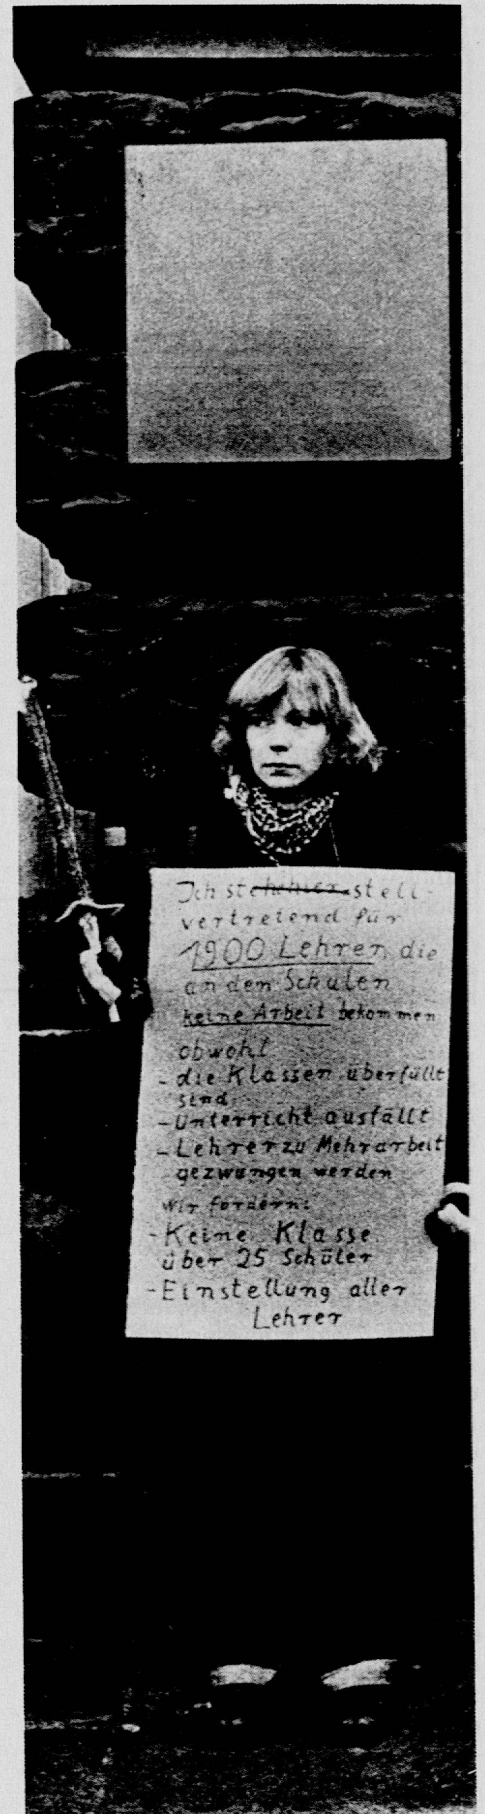 Ich stehe hier stell-
vertretend für
1900 Lehrer, die
an den Schulen
keine Arbeit bekommen
obwohl
- die Klassen überfüllt
sind
- Unterricht ausfällt
- Lehrer zu Mehrarbeit
gezwungen werden
Wir fordern:
- Keine Klasse
über 25 Schüler
- Einstellung aller
Lehrer